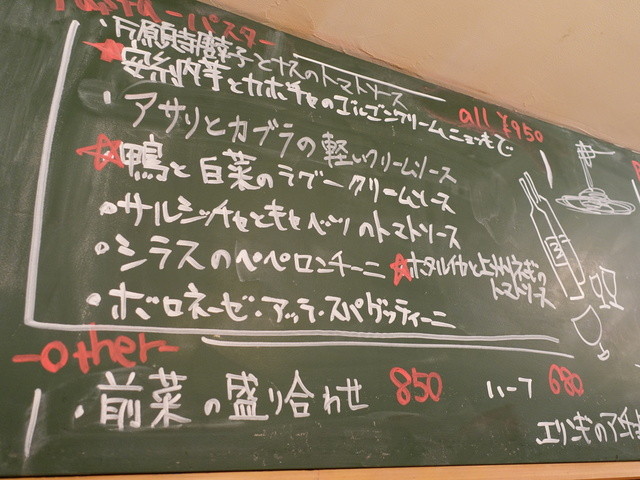 Pasta-パスター
・万願寺唐辛子とナスのトマトソース
★安納芋とカボチャのゴルゴンクリームニョッキで
all ¥950
・アサリとカブラの軽いクリームソース
★鴨と白菜のラグークリームソース
・サルシッチャとキャベツのトマトソース
・シラスのペペロンチーニ
★ホタルイカと上州ネギの
トマトソース
・ボロネーゼ・アッラ・スパゲッティーニ
-other-
・前菜の盛り合わせ 850 ハーフ 680
エリンギのアチ